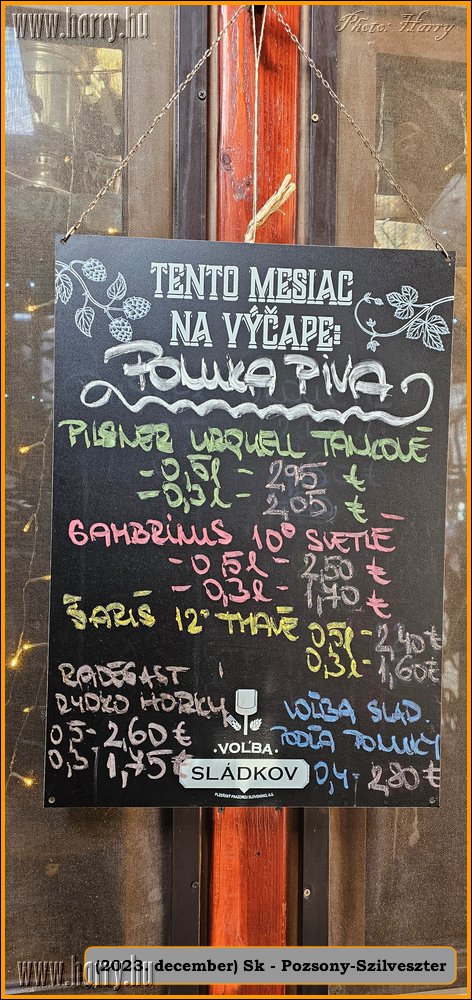 www.harry.hu
Photo: Harry
TENTO MESIAC
NA VÝČAPE:
PONUKA PIVA
PILSNER URQUELL TANKOVÉ
- 0,5l - 2,95 €
- 0,3l - 2,05 €
GAMBRINUS 10° SVETLÉ
- 0,5l - 2,50 €
- 0,3l - 1,70 €
ŠARIŠ 12° TMAVÉ 0,5l - 2,40 €
0,3l - 1,60 €
RADEGAST
RYDZO HORKÝ
0,5 - 2,60 €
0,3 - 1,75 €
VOĽBA SLÁD.
PODĽA PONUKY
0,4 - 2,80 €
· VOĽBA ·
SLÁDKOV
PLZEŇSKÝ PRAZDROJ SLOVENSKO, A.S.
www.harry.hu
(2023. december) Sk - Pozsony-Szilveszter